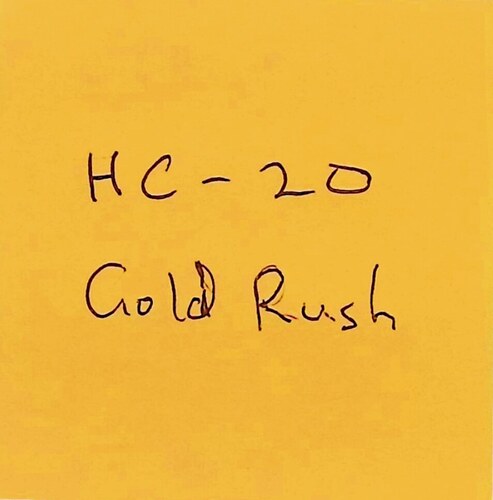 HC-20
Gold Rush